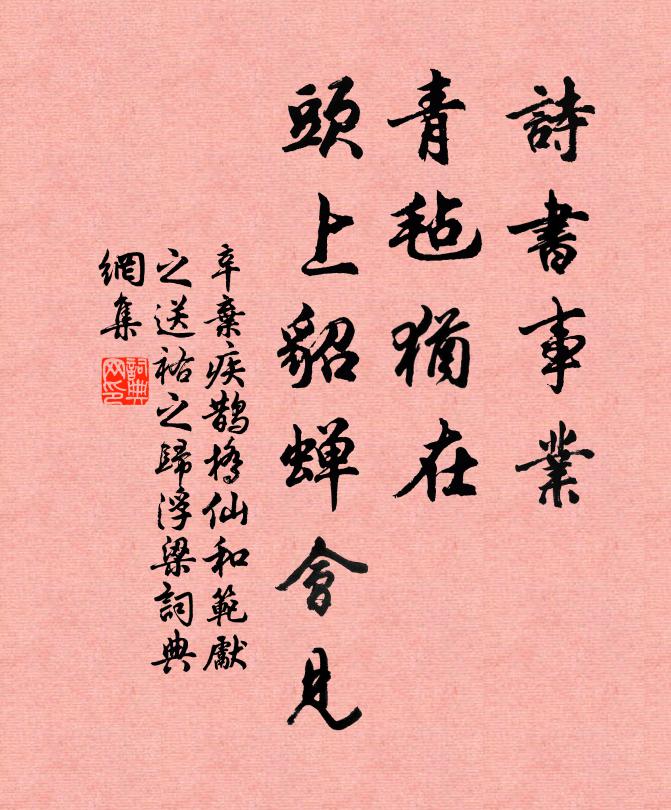 詩書事業
青氈猶在
頭上貂蟬會見
辛棄疾鵲橋仙和範獻
之送祐之歸浮梁詞典
網集
詞典
网印